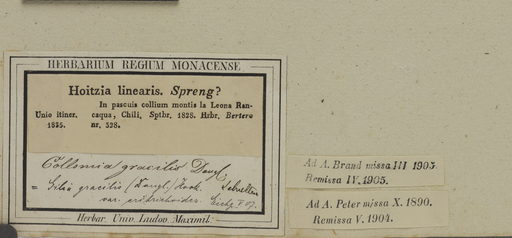 HERBARIUM REGIUM MONACENSE
Hoitzia linearis. Spreng?
In pascuis collium montis la Leona Ran-
Unio itiner. caqua, Chili, Sptbr. 1828. Hrbr. Bertero
1835. nr. 528.
Collomia gracilis Dougl.
= Gilia gracilis (Dougl.) Hook.
var.
Herbar. Univ. Ludov. Maximil.
Ad A. Brand missa III 1905.
Remissa IV. 1905.
Ad A. Peter missa X. 1890.
Remissa V. 1904.